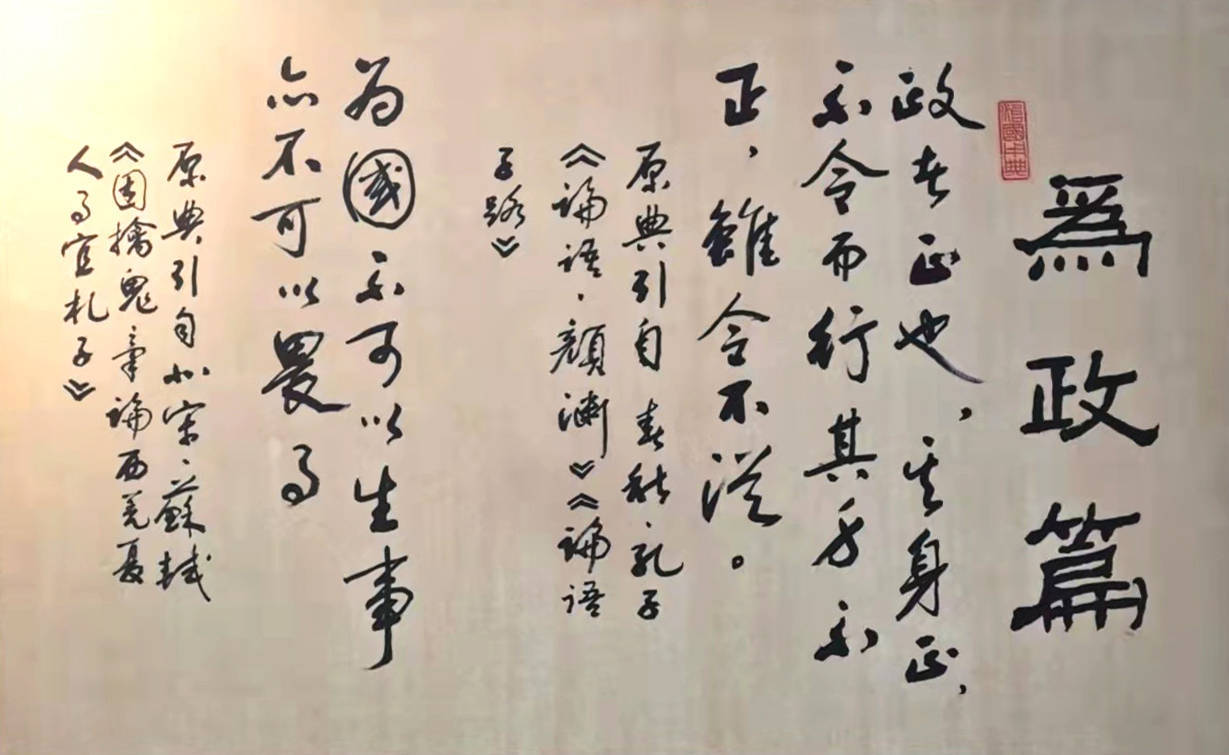 為政篇
政者正也，其身正，
不令而行其身不
正，雖令不從。
原典引自春秋·孔子
《論語·顏淵》《論語
子路》
为國不可以生事
亦不可以畏事
原典引自北宋·蘇軾
《因擒鬼章論西羌夏
人事宜札子》